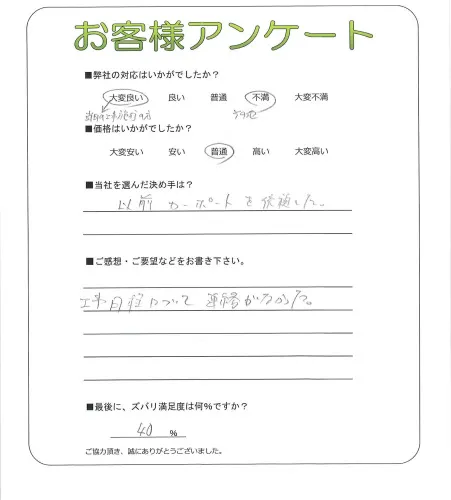 お客様アンケート
■弊社の対応はいかがでしたか?
大変良い 良い 普通 不満 大変不満
その他
■価格はいかがでしたか?
大変安い 安い 普通 高い 大変高い
■当社を選んだ決め手は?
以前カーポートを依頼した。
■ご感想・ご要望などをお書き下さい。
工事日程について連絡がなかった。
■最後に、ズバリ満足度は何%ですか?
40 %
ご協力頂き、誠にありがとうございました。